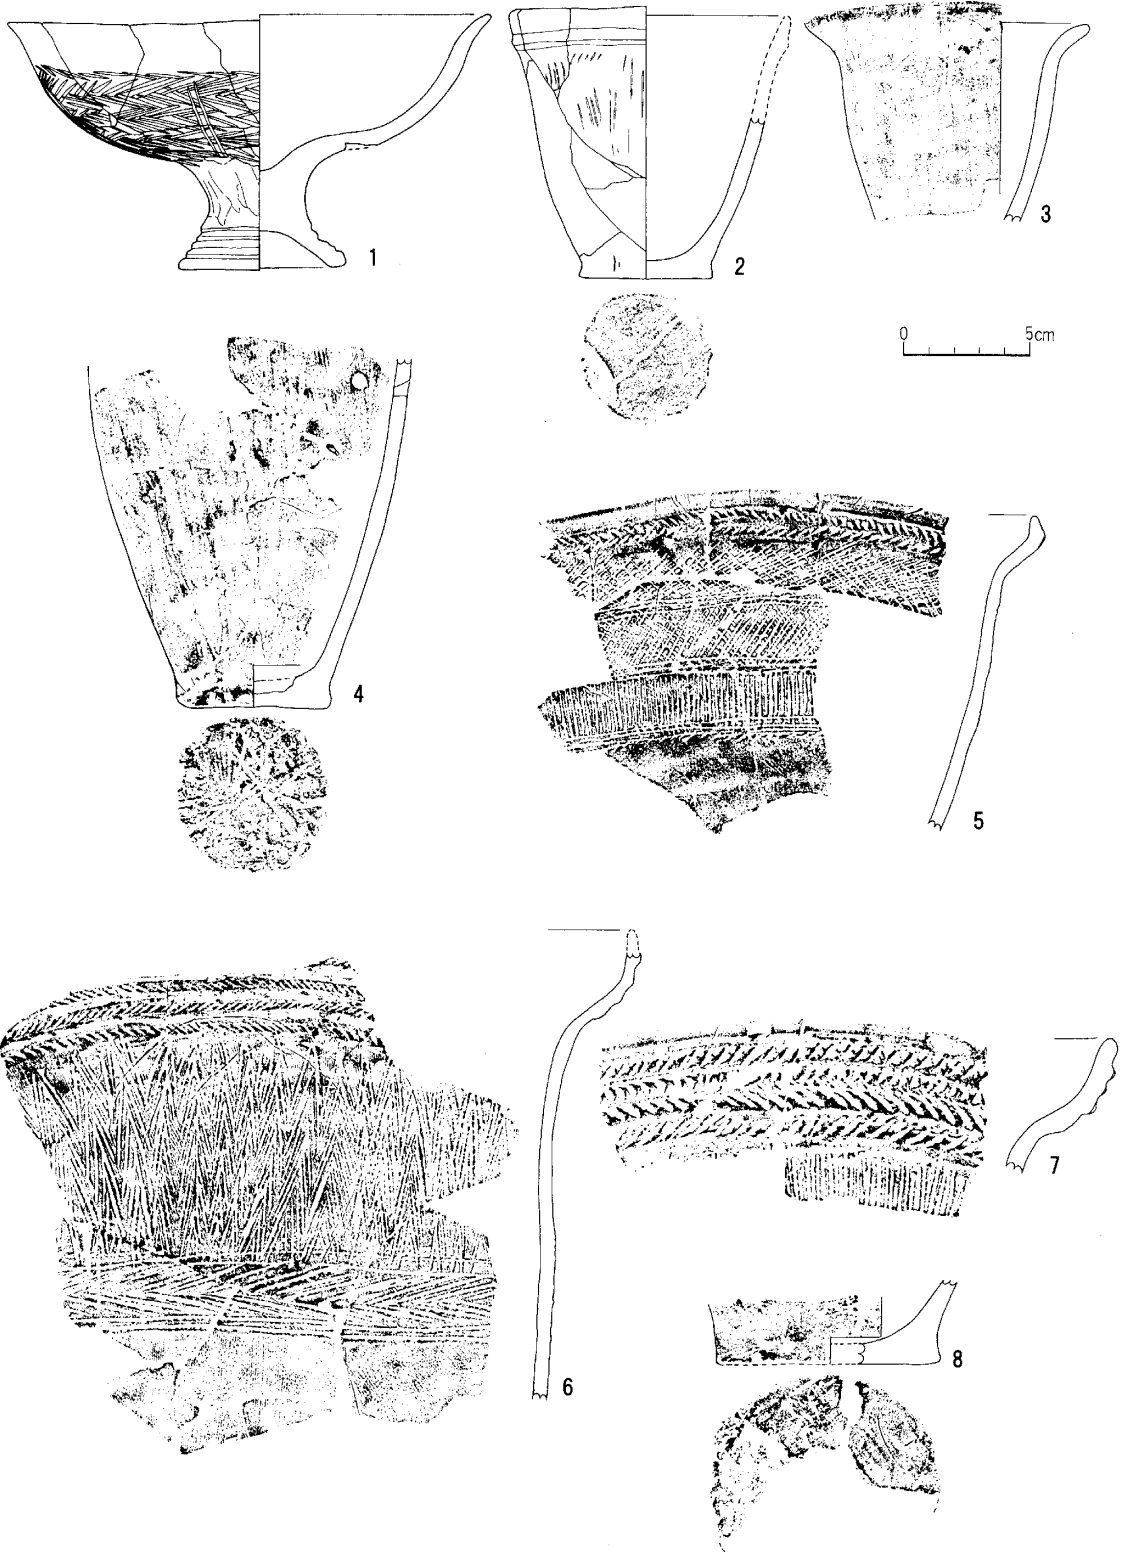 1
2
3
0 5cm
4
5
6
7
8